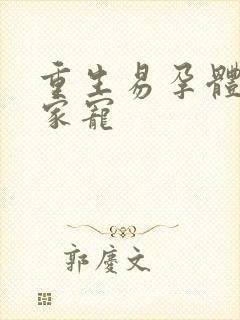 重生易孕體
家寵
郭慶文